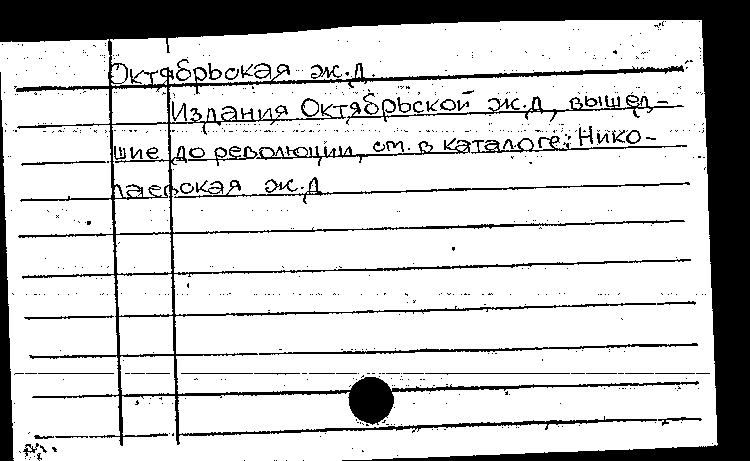 Октябрьская ж.д.
Издания Октябрьской ж.д, вышед-
шие до революции, см. в каталоге: Нико-
лаевская ж.д